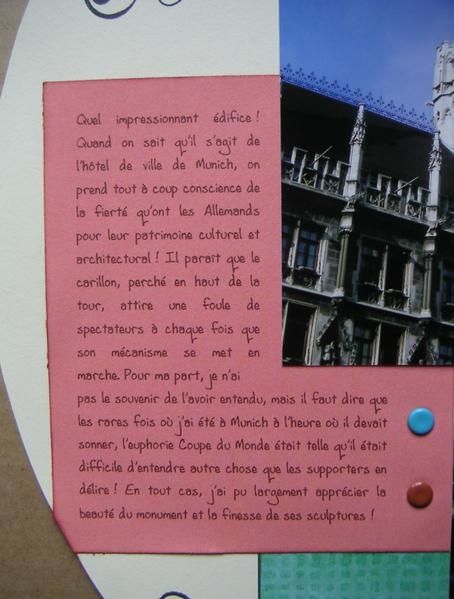 Quel impressionnant édifice !
Quand on sait qu'il s'agit de
l'hôtel de ville de Munich, on
prend tout à coup conscience de
la fierté qu'ont les Allemands
pour leur patrimoine culturel et
architectural ! Il paraît que le
carillon, perché en haut de la
tour, attire une foule de
spectateurs à chaque fois que
son mécanisme se met en
marche. Pour ma part, je n'ai
pas le souvenir de l'avoir entendu, mais il faut dire que
les rares fois où j'ai été à Munich à l'heure où il devait
sonner, l'euphorie Coupe du Monde était telle qu'il était
difficile d'entendre autre chose que les supporters en
délire ! En tout cas, j'ai pu largement apprécier la
beauté du monument et la finesse de ses sculptures !